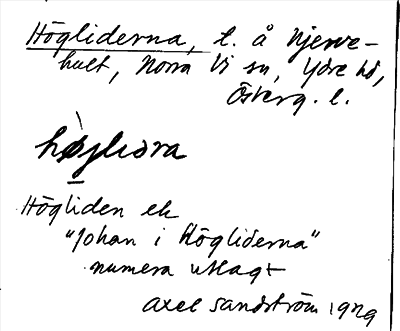 Högliderna, t. å Njerve-
hult, Norra Vi sn, Ydre hd,
Österg. l.
høgliđra
Högliden ek
"Johan i Högliderna"
numera utlagt
Axel Sandström 1929